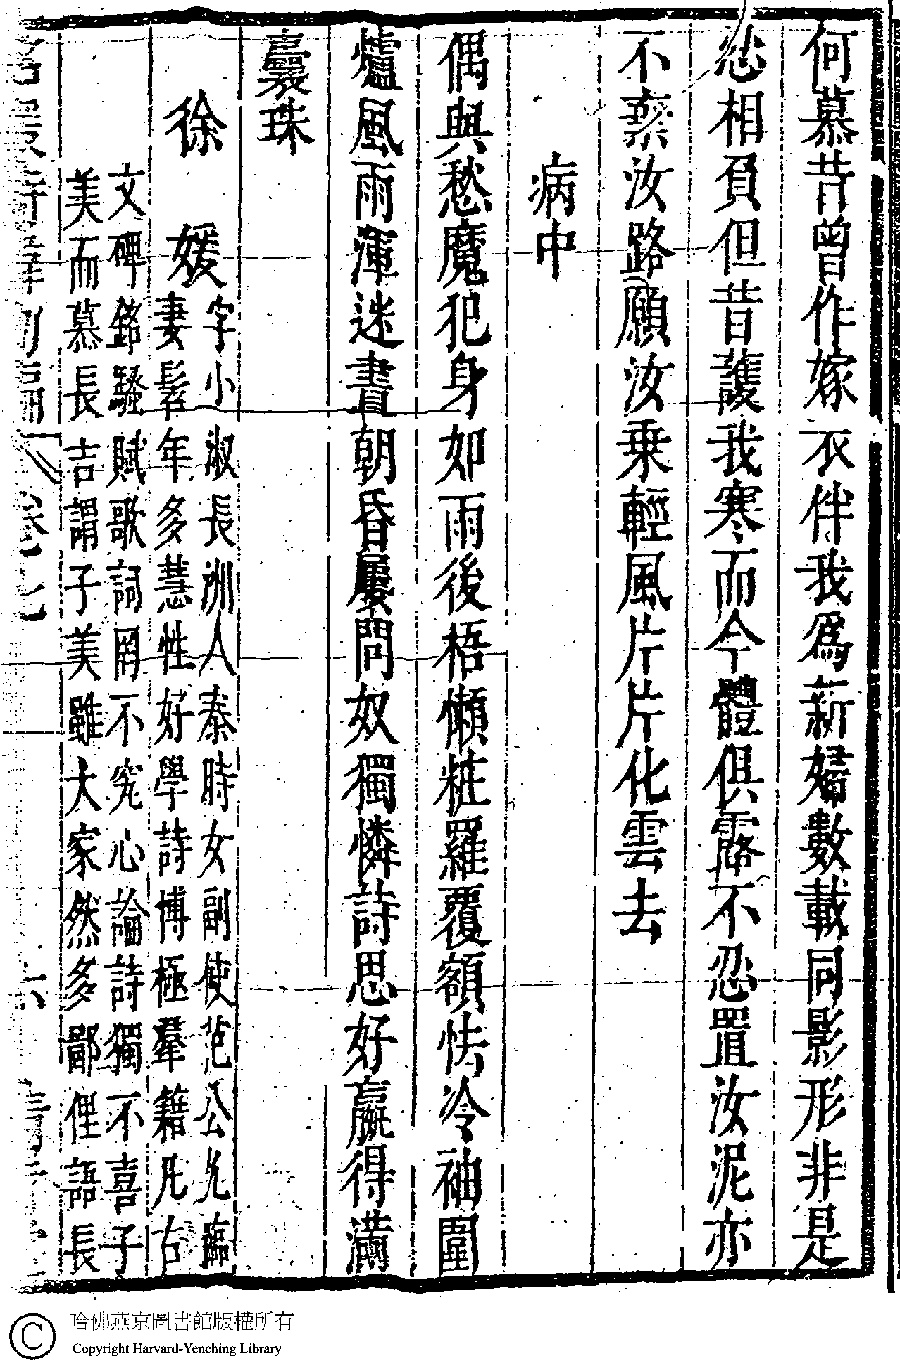 何慕昔曾作嫁衣伴我爲新婦數載同影形非是
愆相負但昔護我寒而今體俱露不忍置汝泥亦
不棄汝路願汝乗輕風片片化雲去
病中
偶與愁魔犯身如雨後梧懶粧羅覆額怯冷袖圍
爐風雨渾迷晝朝昏屢問奴獨憐詩思好嬴得滿
囊珠
徐　媛
字小淑長洲人泰時女副使范公允臨
妻髫年多慧性好學詩博極羣籍凡古
文碑銘騷賦歌詞罔不究心論詩獨不喜子
美而慕長吉謂子美雖大家然多鄙俚語長
名媛詩緯初編 卷七 六 清
哈佛燕京圖書館版權所有
Copyright Harvard-Yenching Library